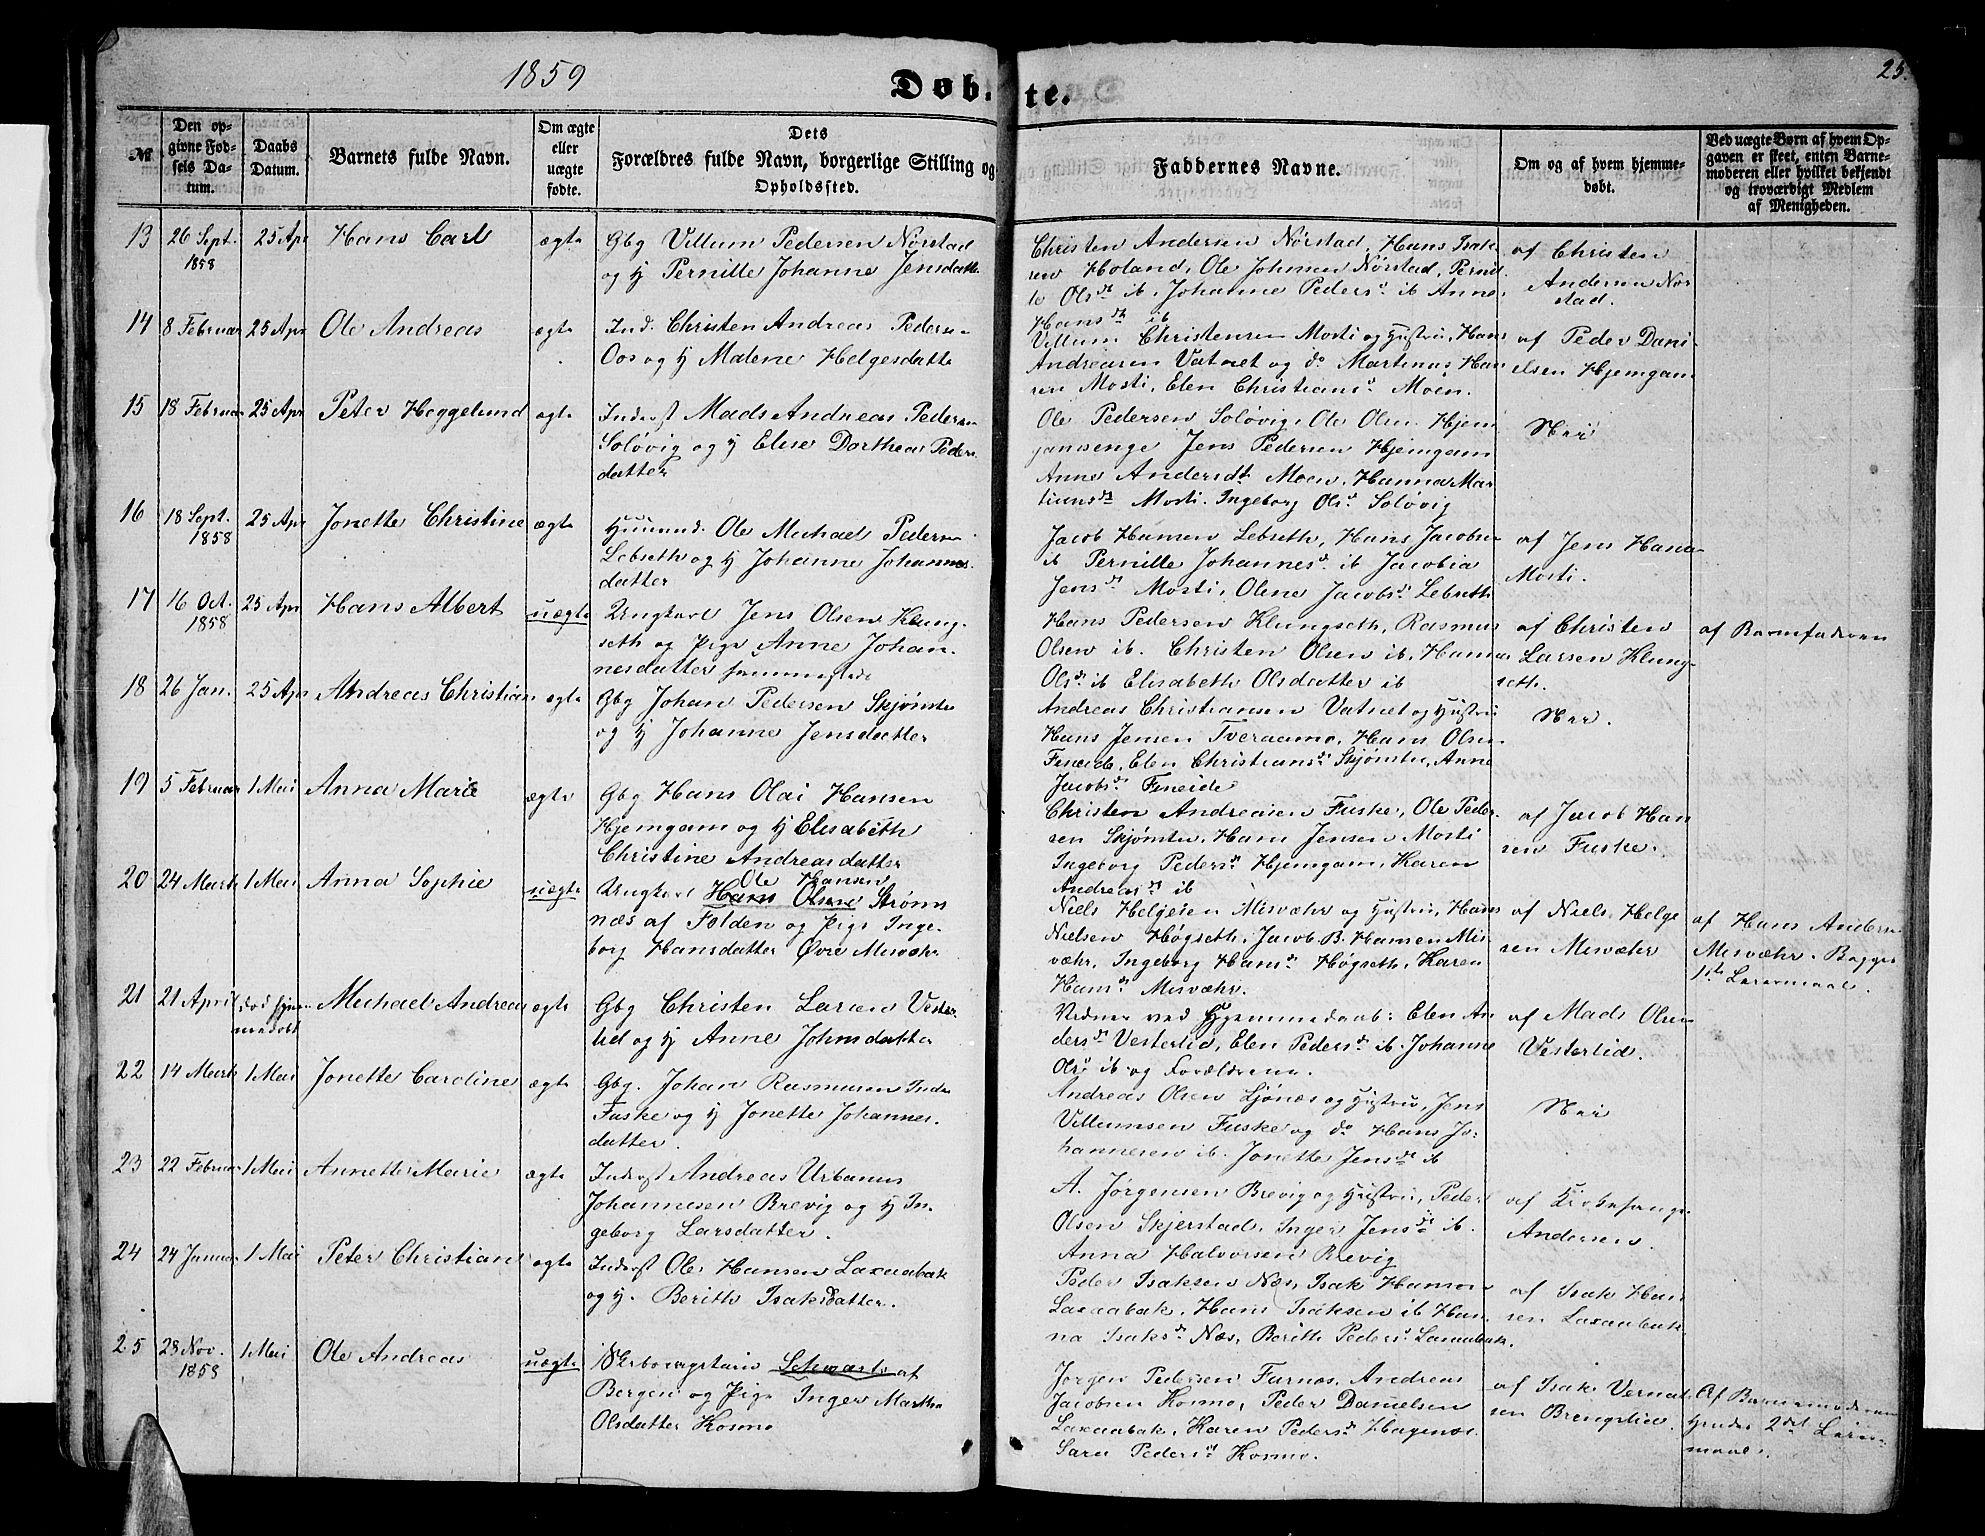 1859
Døb- te.
25.
№
Den opgivne Fødsels Datum.
Daabs Datum.
Barnets fulde Navn.
Om ægte eller uægte fødte.
Dets
Forældres fulde Navn, borgerlige Stilling og
Opholdssted.
Faddernes Navne.
Om og af hvem hjemmedøbt.
Ved uægte Børn af hvem Opgaven er skeet, enten Barnemoderen eller hvilket bekjendt og troværdigt Medlem af Menigheden.
13 26 Sept. 1858 25 Apr Hans Carl ægte
Gbg Villum Pedersen Nørstad
og H Pernille Johanne Jensdatter
Christen Andersen Nørstad, Hans Isak-
sen Holand, Ole Johnsen Nørstad, Pernil-
le Olsdt ib, Johanne Pedersd ib Anne
Hansdt ib
af Christen
Andersen Nør
stad.
14 8 Februar 25 Apr Ole Andreas ægte
Ind. Christen Andreas Peders-
Oos og H Malene Helgesdatte
Villum Christensen Mosti og Hustru, Hans
Andreasen Vatnet og do Martinus Han
sen Mosti, Elen Christiansd Moen.
af Peder Dani-
elsen Hjemgam
15 18 Februar 25 Apr Peter Heggelund ægte
Inderst Mads Andreas Pedersen
Soløvig og H Elise Dorthea Peders
datter
Ole Pedersen Soløvig, Ole Olsen Hjem
gamsenge Jens Pedersen Hjemgam
Anne Andersdt Moen, Hanna Mar
tiansdt Mosti, Ingeborg Olsd Soløvig
Nei
16 18 Sept. 1858 25 Apr Jonette Christine ægte
Huusmd. Ole Michael Peders-
Lebseth og H Johanne Johannes
datter
Jacob Hansen Lebseth, Hans Jacobsen
ib Pernille Johannesd ib Jacobia
Jensdt Mosti, Olene Jacobsd Lebseth
af Jens Hans-
Mosti.
17 16 Oct. 1858 25 Apr Hans Albert uægte
Ungkarl Jens Olsen Klung-
seth og Pige Anne Johan-
nesdatter sammesteds
Hans Pedersen Klungseth, Rasmus
Olsen ib. Christen Olsen ib, Hanna
Olsdt ib Elisabeth Olsdatter ib
af Christen
Larsen Klung-
seth.
af Barnefaderen
18 26 Jan. 25 Apr Andreas Christian ægte
Gbg Johan Pedersen Skjønsta
og H Johanne Jensdatter
Andreas Christiansen Vatnet og Hustru
Hans Jensen Tveraamo, Hans Olsen
Fineide, Elen Christiansd Skjønsta, Anne
Jacobsdt Fineide
Nei.
19 5 Februar 1 Mai Anna Marie ægte
Gbg Hans Olai Hansen
Hjemgam og H Elisabeth
Christine Andreasdatter
Christen Andreasen Fuske, Ole Peder-
sen Skjønsta, Hans Jensen Mosti
Ingeborg Pedersdt Hjemgam, Karen
Andreasdt ib
af Jacob Han
sen Fuske.
20 24 Marts 1 Mai Anna Sophie uægte
Ole Hansen
Ungkarl Hans Olsen Strøm
næs af Folden og Pige Inge-
borg Hansdatter Øvre Misvæhr
Niels Helgesen Misvæhr og Hustru, Hans
Nielsen Høgseth, Jacob B. Hansen Mis-
væhr, Ingeborg Hansdt Høgseth, Karen
Hansdt Misvæhr.
af Niels Helge
sen Misvæhr
af Hans Anders-
Misvæhr. Begges
1ste Leiermaal.
21 21 April død hjem
medøbt Michael Andreas ægte
Gbg Christen Larsen Vester-
lid og H Anne Johnsdatter
Vidner ved Hjemmedaab: Elen An
dersdt Vesterlid, Elen Pedersdt ib. Johanne
Olsd ib og Forældrene.
af Mads Olsen
Vesterlid.
22 14 Marts 1 Mai Jonette Caroline ægte
Gbg. Johan Rasmusen Indre
Fuske og H Jonette Johannes-
datter.
Andreas Olsen Ljønes og Hustru, Jens
Villumsen Fuske og do Hans Jo-
hannesen ib. Jonette Jensdt ib
Nei
23 22 Februar 1 Mai Annette Marie ægte
Inderst Andreas Urbanus
Johannesen Brevig og H In-
geborg Larsdatter.
A. Jørgensen Brevig og Hustru, Peder
Olsen Skjerstad, Inger Jensdt ib.
Anna Halvorsen Brevig
af Kirkesanger
Andersen.
24 24 Januar 1 Mai Peter Christian ægte
Inderst Ole Hansen Laxaabak
og H. Berith Isaksdatter.
Peder Isaksen Næs, Isak Hansen
Laxaabak, Hans Isaksen ib Han-
na Isaksdt Næs, Berith Pedersd Laxaabak.
af Isak Han
sen Laxaabak
25 28 Nov. 1858 1 Mai Ole Andreas uægte
Schwartz af
Bergen og Pige Inger Martha
Olsdatter Kosmo
Jørgen Pedersen Furnes, Andreas
Jacobsen Kosmo, Peder Danielsen
Laxaabak, Karen Pedersdt Hagenæs
Sara Pedersdt Kosmo.
af Isak Vernat
sen Brengslid.
Af Barnemoderen
Hendes 2det Leier-
maal.